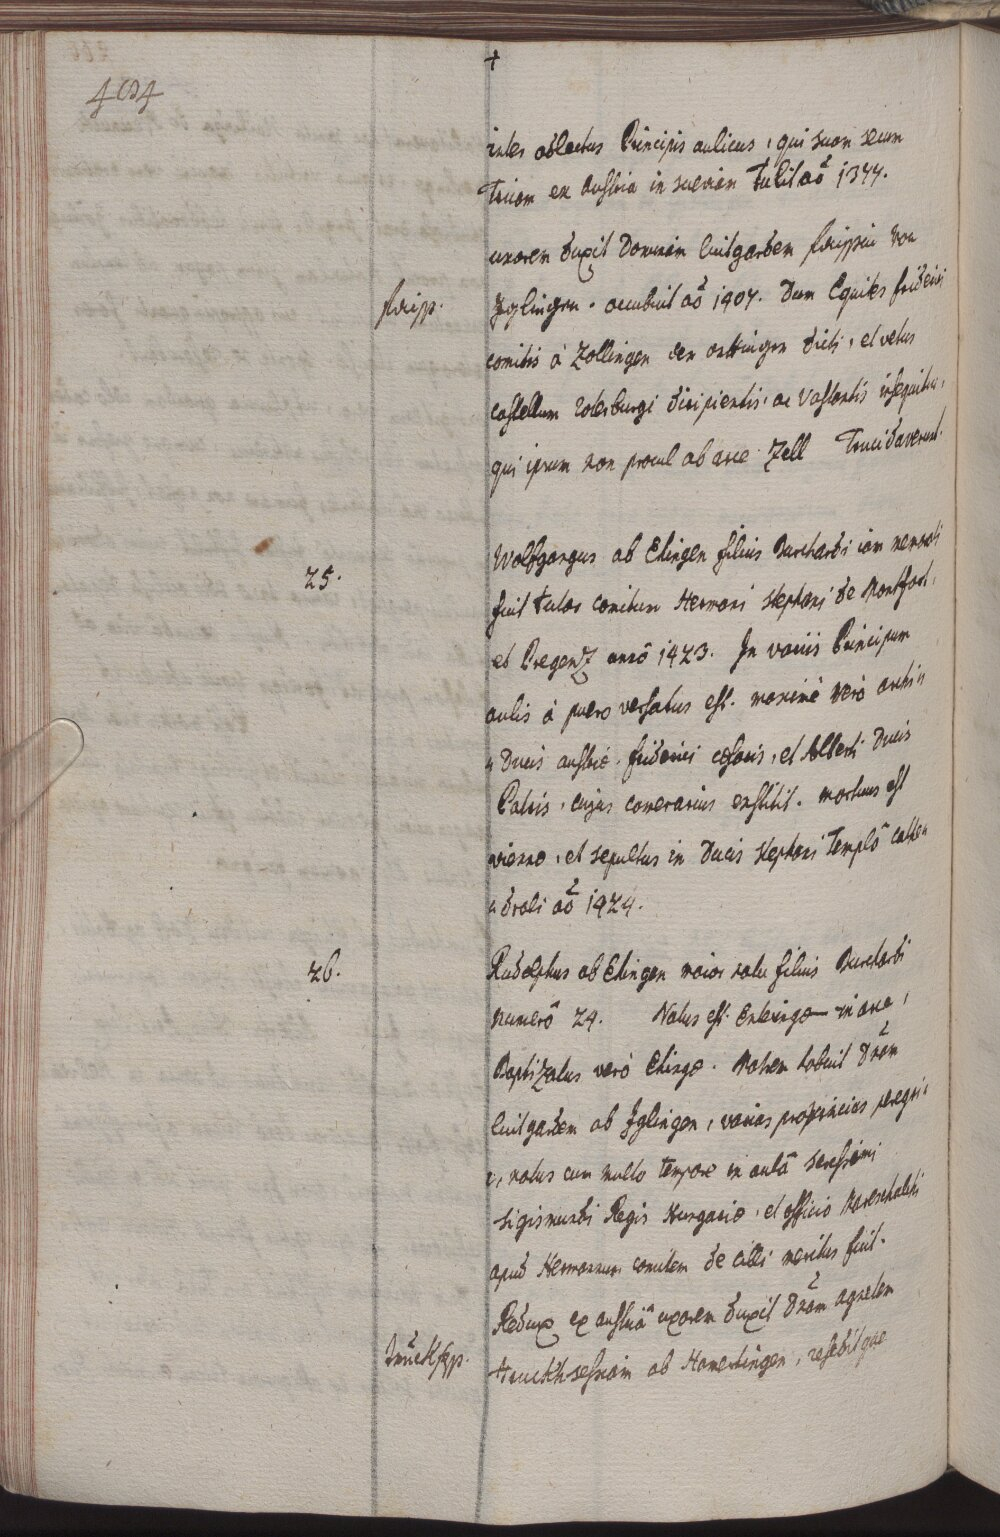 404
+
inter adlectus Principis aulicus, qui suam secum
Truam ex Austria in sueviam Tulit aõ 1377.
uxorem duxit Dominam Luitgardem
scripp. Iglingen. occubuit aõ 1407. Dum Equites friderici
comitis à Zolleren der ottinger dicti, et vetus
castellum roterburgi diripientis, ac vastantis insequitur,
qui ipsum non procul ab arce Zell Trucidaverunt.
25. Wolfgangus ab Ehingen filius Burchardi iam memorati
fuit tutor comitum Hermani stephani de Montfort,
et Pregenz annô 1423. In variis Principum
aulis à puero versatus est. maximè verò archi„
„Ducis austriæ friderici cæsaris, et Alberti Ducis
Patris, cujus camerarius exstitit. mortuus est
viennæ, et sepultus in Ducis stephani Templô cathe„
„drali aõ 1424.
26. Rudolphus ab Ehingen maior natu filius Burchardi
numerô 24. Natus est Entringæ in arce,
Baptizatus verò Ehingæ. Matrem habuit Dnãm
Luitgardem ab Iglingen, varias provincias peregri„
„natus cum multo tempore in aulâ
sigismundi Regis Hungariæ, et officio Mareschalchi
apud Hermannum comitem de cilli meritus fuit.
Redux ex austriâ uxorem duxit Dnãm agnetem
truckhsessiam ab Hemertingen, reseditque